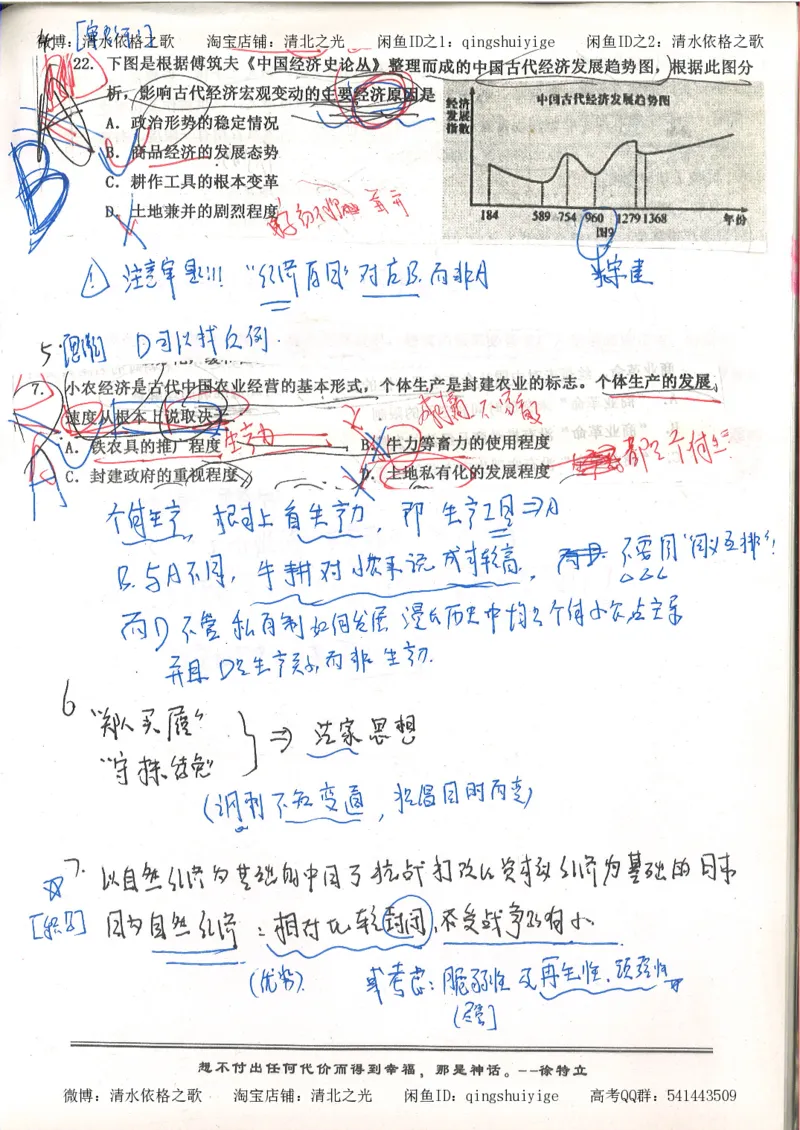 微博：清水依格之歌 淘宝店铺：清北之光 闲鱼ID之1：qingshuiyige 闲鱼ID之2：清水依格之歌
22. 下图是根据傅筑夫《中国经济史论丛》整理而成的中国古代经济发展趋势图，根据此图分
析，影响古代经济宏观变动的主要经济原因是
A．政治形势的稳定情况
B．商品经济的发展态势
C．耕作工具的根本变革
D．土地兼并的剧烈程度
经济发展指数
中国古代经济发展趋势图
184 589 754 960 1279 1368 年份
图9
B
① 注意审题!!! "经济原因" 对应B，而非A
宋建
5. D可以找反例.
7. 小农经济是古代中国农业经营的基本形式，个体生产是封建农业的标志。个体生产的发展
速度从根本上说取决于
A．铁农具的推广程度 生产力
B．牛力等畜力的使用程度
C．封建政府的重视程度
D．土地私有化的发展程度
个体生产，根本上看生产力，即 生产工具⇒A
B与A不同，牛耕对小农来说成本较高， 不要用"同义互排"!
而D不管私有制如何发展 漫长历史中均是个体小农占主导
并且D是生产关系而非生产力.
6
"郑人买履"
"守株待兔"
⇒ 法家思想
(讽刺不知变通，提倡因时而变)
7. 以自然经济为基础的中国了抗战打败以资本经济为基础的日本
[积累] 因为自然经济：相对比较封闭，不受战争影响小
(优势). 或考虑：脆弱性 及再生性、顽强性
想不付出任何代价而得到幸福，那是神话。--徐特立
微博：清水依格之歌 淘宝店铺：清北之光 闲鱼ID：qingshuiyige 高考QQ群：541443509